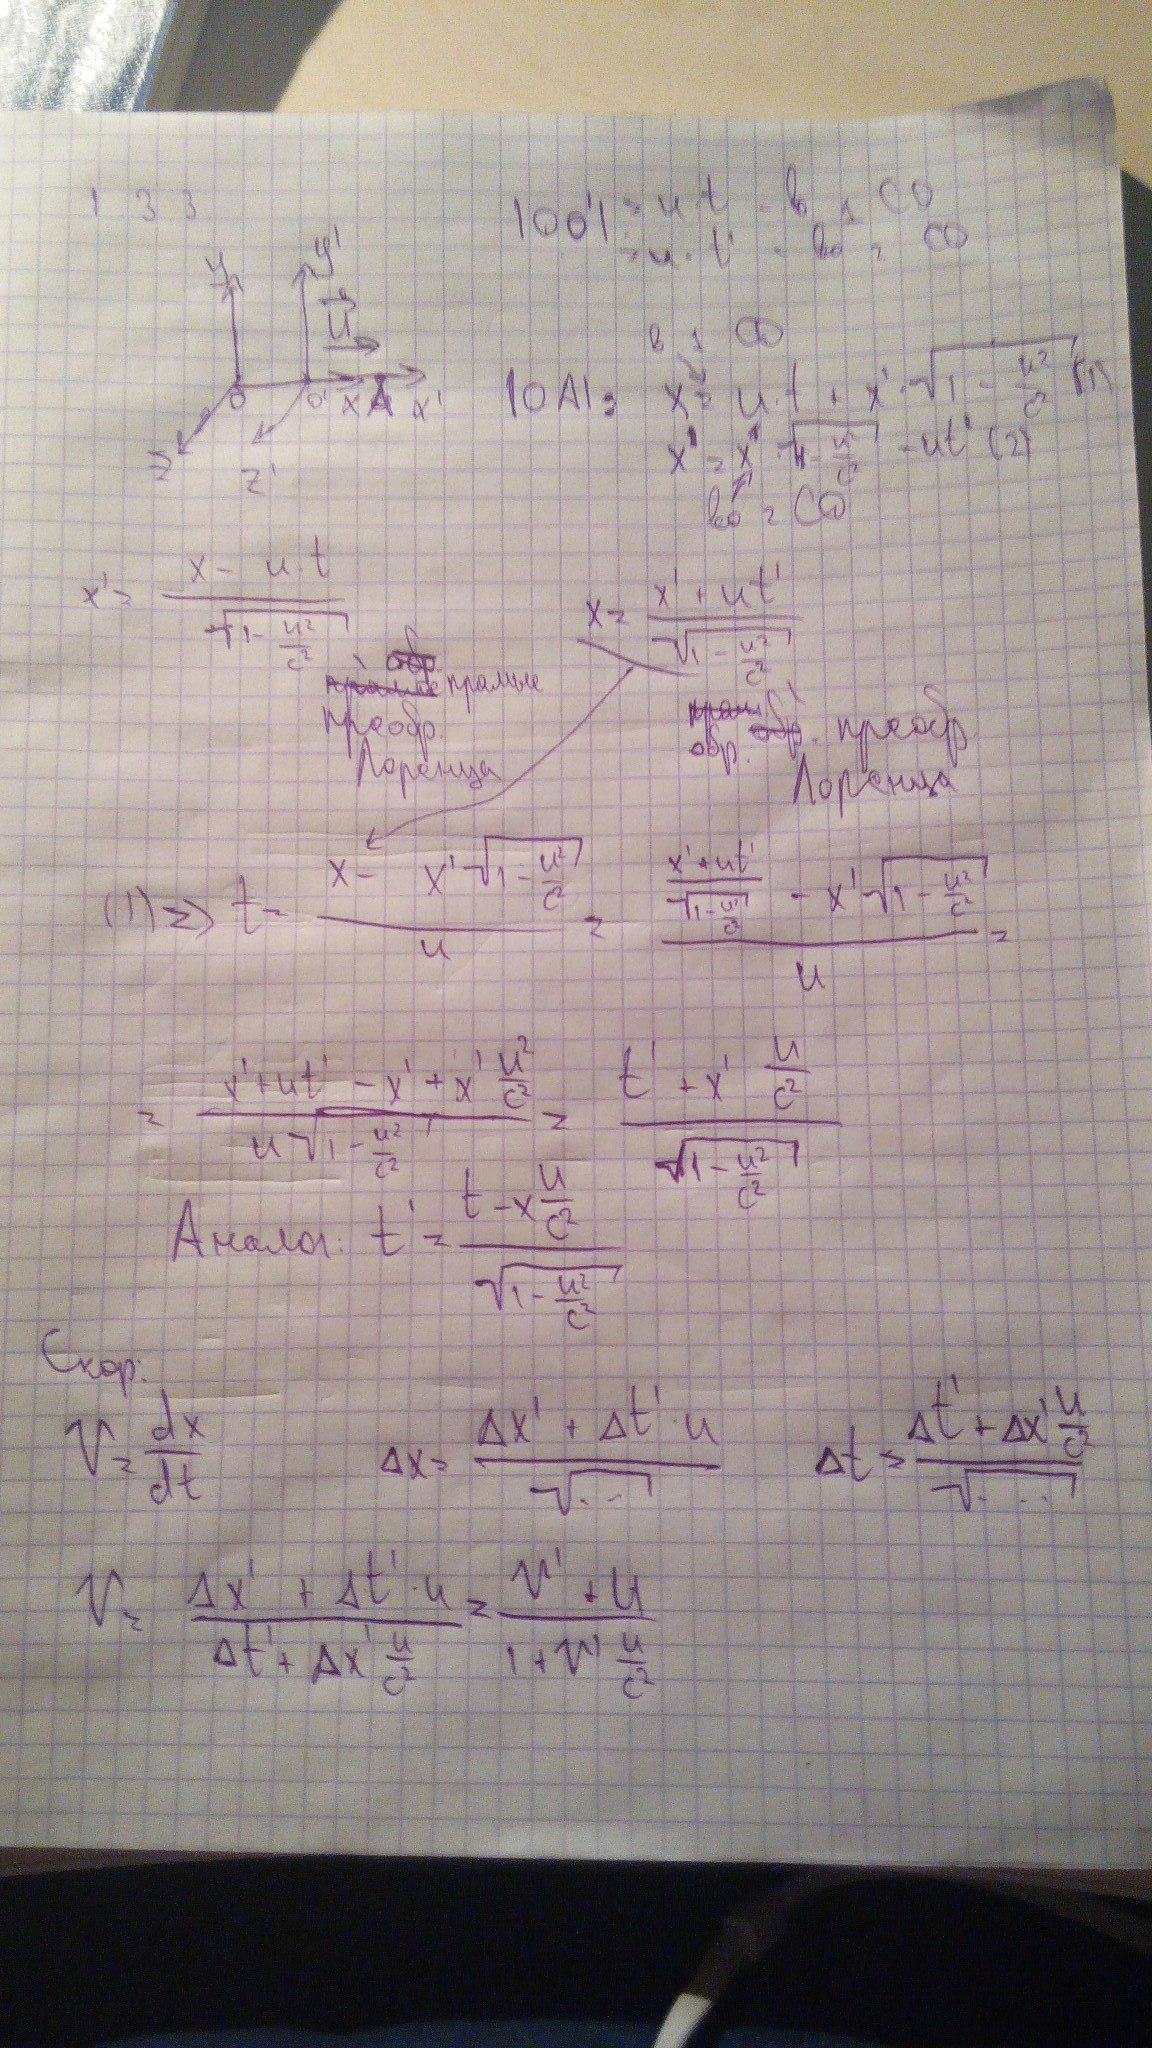 1 3 3
|OO'| = u·t - в 1 CO
= u·t' - во 2 CO
y y' u
O O' x A x'
z z'
в 1 CO
|OA| = x = u·t + x'·√(1 - u²/c²) (1)
x' = x·√(1 - u²/c²) - ut' (2)
во 2 CO
x' = (x - u·t)/√(1 - u²/c²)
x = (x' + ut')/√(1 - u²/c²)
прямые преобр. Лоренца
обр. преобр. Лоренца
(1) => t = (x - x'√(1 - u²/c²))/u = ((x' + ut')/√(1 - u²/c²) - x'√(1 - u²/c²))/u =
= (x' + ut' - x' + x' u²/c²)/(u√(1 - u²/c²)) = (t' + x' u/c²)/√(1 - u²/c²)
Аналог: t' = (t - x u/c²)/√(1 - u²/c²)
Скор:
V = dx/dt Δx = (Δx' + Δt'·u)/√... Δt = (Δt' + Δx' u/c²)/√...
V = (Δx' + Δt'·u)/(Δt' + Δx' u/c²) = (V' + u)/(1 + V' u/c²)